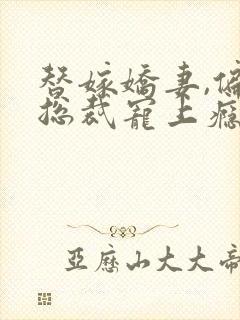 替嫁嬌妻,偏
総裁寵上癮
亞歷山大大帝